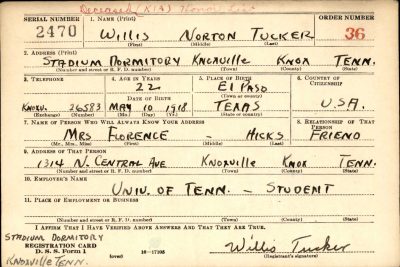 Deceased (KIA) Honor List
SERIAL NUMBER 1. NAME (Print) ORDER NUMBER
2470 WILLIS NORTON TUCKER 36
(First) (Middle) (Last)
2. ADDRESS (Print)
STADIUM DORMITORY KNOXVILLE KNOX TENN.
(Number and street or R. F. D. number) (Town) (County) (State)
3. TELEPHONE 4. AGE IN YEARS 5. PLACE OF BIRTH 6. COUNTRY OF CITIZENSHIP
22 EL PASO
(Town or county)
DATE OF BIRTH
KNOXV. 26583 MAY 10 1918 TEXAS U.S.A.
(Exchange) (Number) (Mo.) (Day) (Yr.) (State or country)
7. NAME OF PERSON WHO WILL ALWAYS KNOW YOUR ADDRESS 8. RELATIONSHIP OF THAT PERSON
MRS FLORENCE - HICKS FRIEND
(Mr., Mrs., Miss) (First) (Middle) (Last)
9. ADDRESS OF THAT PERSON
1314 N. CENTRAL AVE KNOXVILLE KNOX TENN.
(Number and street or R. F. D. number) (Town) (County) (State)
10. EMPLOYER'S NAME
UNIV. OF TENN. - STUDENT
11. PLACE OF EMPLOYMENT OR BUSINESS
(Number and street or R. F. D. number) (Town) (County) (State)
I AFFIRM THAT I HAVE VERIFIED ABOVE ANSWERS AND THAT THEY ARE TRUE.
STADIUM DORMITORY
REGISTRATION CARD
D. S. S. Form 1 (over) 16-17105 Willis Tucker
KNOXVILLE TENN. (Registrant's signature)